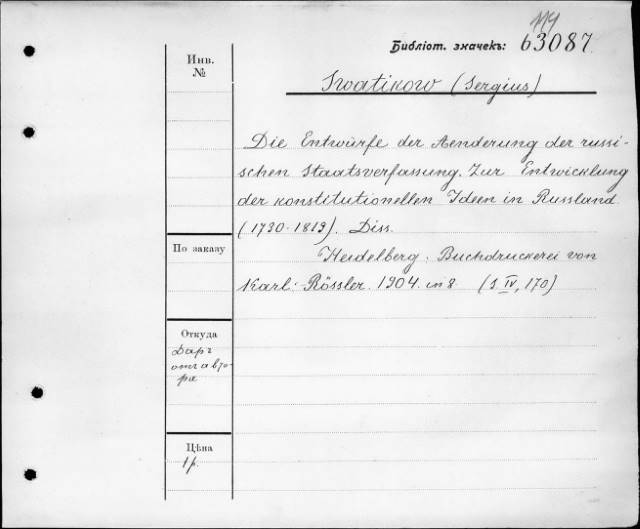 114
Библіот. значекъ: 63087
Инв.
№
Swatikow (Sergius)
Die Entwürfe der Aenderung der russi-
schen Staatsverfassung. Zur Entwicklung
der konstitutionellen Ideen in Russland
(1730-1819). Diss.
Heidelberg: Buchdruckerei von
Karl Rössler. 1904. in 8. (S IV, 170)
По заказу
Откуда
Даръ
отъ авто-
ра
Цѣна
1 р.